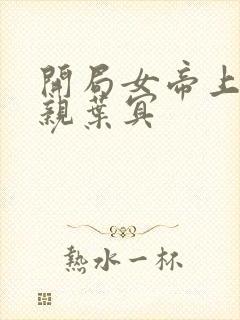 開局女帝上
親葉冥
熱水一杯